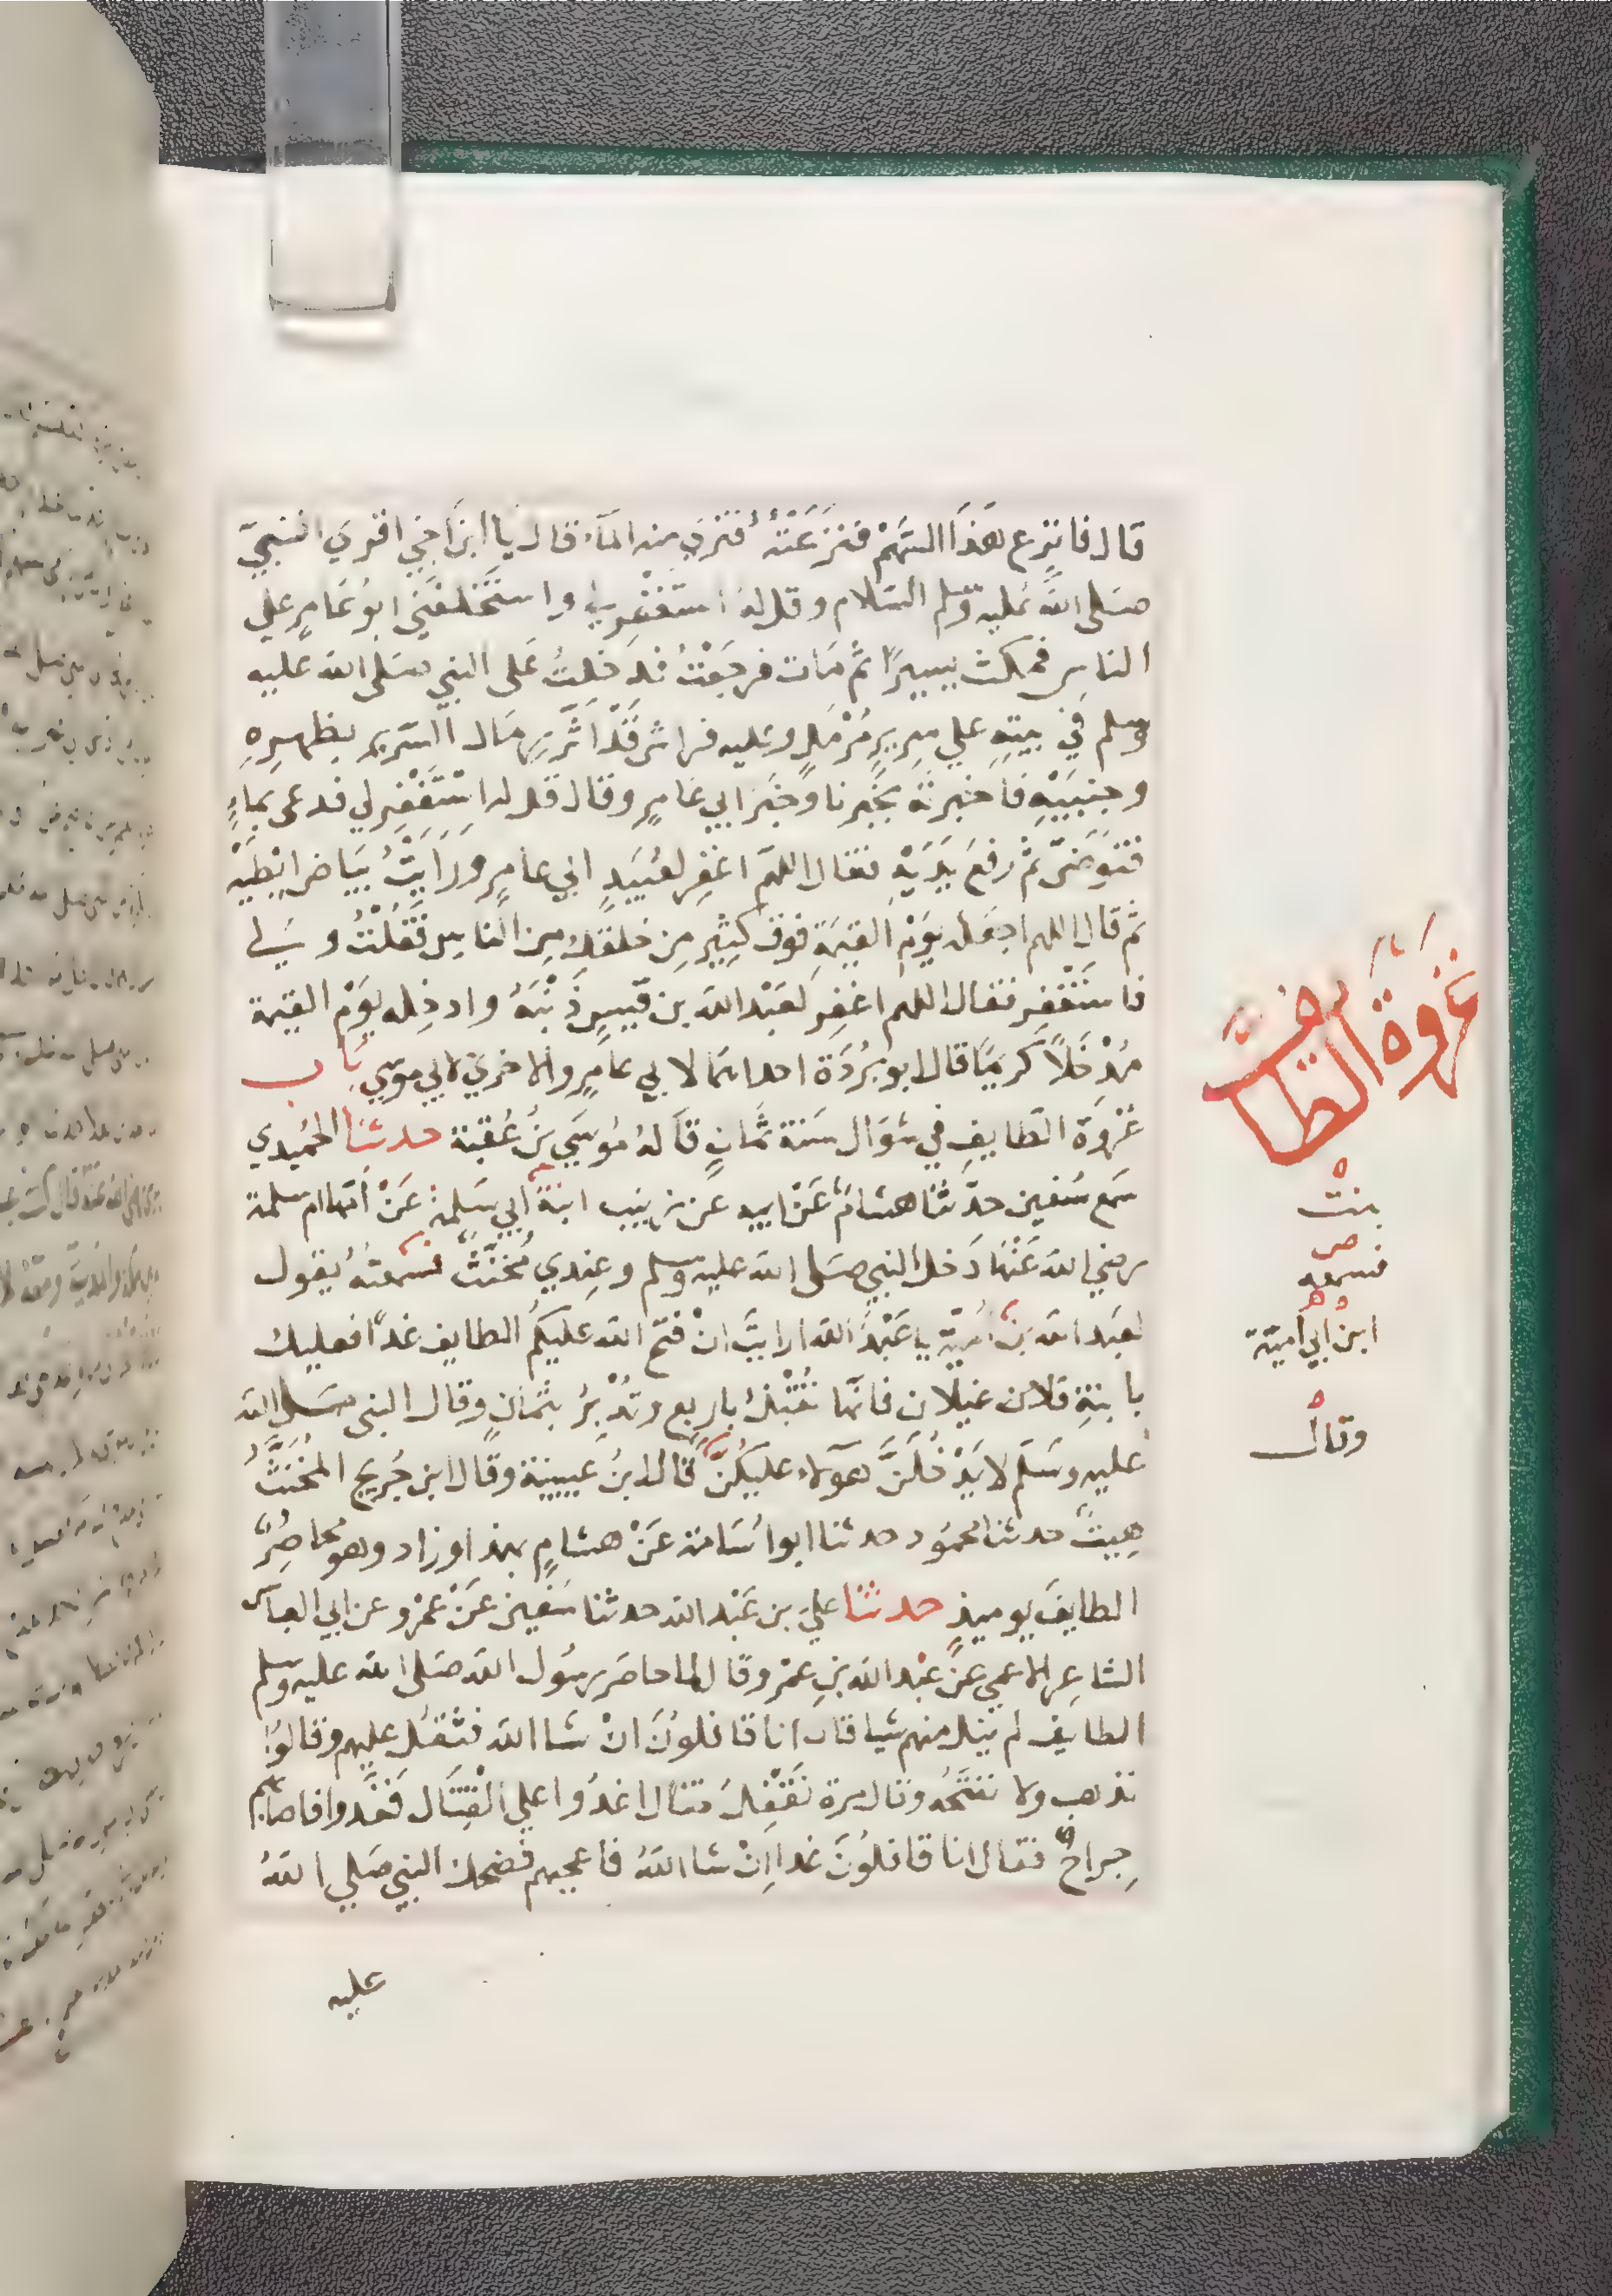 قال فانزع هَذَا السَّهْمَ فنَزَعْتُهُ فنَزَى منه المآء قال يا ابن اَخِي اقرئ النبيّ
صَلى اللهُ عَليه وسّلم السّلام وقل له استَغْفِر لي واستَخْلَفَنِي ابُو عَامِرٍ علي
الناسِ فمكث يسيرًا ثم مَات فرجَعْتُ فدَخلتُ عَلى النبي صَلى الله عليه
وسلم في بيتِهِ علي سرِيرٍ مُرْمَلٍ وعليه فراش قَدْ اَثَّرَ رِمَال السّرير بظهرِهِ
وجنبَيْهِ فَاخبرتهُ بخَبرنا وَخبَر ابي عَامِرٍ وقال قل له اسْتَغْفِر لي فدعى بماءٍ
فتوَضىّ ثم رفع يَدَيْهِ فقال اللهمّ اغفِر لعُبَيدٍ ابي عامِرٍ ورَاَيْتُ بيَاض ابْطَيْه
ثم قال اللهم اجعَله يوَم القيمَةِ فوق كثِيرٍ مِن خلقِك مِن الناسِ فَقُلْتُ وَ لي
فاستَغْفِر فقال اللهم اغفِر لعَبْد الله بن قَيسٍ ذَنْبَهُ وادخِله يوَم القيمة
مُدْخَلاً كريمًا قال ابو بُرْدَة احداهمَا لابي عامِرٍ والاخري لابي موسي بَاب
غزوَة الطَايفِ في شوَال سَنة ثمَانٍ قَالهُ مُوسَي بنُ عُقبة حدثنا الحُميدي
سَمِع سُفين حدّثنا هشامٌ عَنْ ابيه عَن زينب ابنة ابي سَلمة عَنْ امّها ام سلمة
رضي الله عَنْهَا دَخل النبي صَلى الله عليه وسلم وعِندي مُخنَّثٌ فسمعتُهُ يقول
لعَبد الله بن اُميّة يا عَبْدَ الله ارايتَ انْ فتح الله عليكم الطايف غدًا فعليك
بابنةِ غيلان فانهَا تُقْبِلُ باربعٍ وتُدْبِرُ بثمَانٍ وقال النبي صَلى الله
عليه وسَلم لا يَدْخُلَنَّ هؤلاء عليكُنَّ قَال ابنُ عُيَيْنة وقال ابن جُريج المُخَنَّثُ
هِيتٌ حدثنا محمُود حدثنا ابو اسَامة عَنْ هشامٍ بهذا وزاد وهو محاصِرٌ
الطايفَ يوميذٍ حدثنا عليّ بن عَبْد الله حدثنا سُفين عَنْ عمْرو عن ابي العباس
الشاعِر الاعمي عَنْ عَبْد الله بنِ عمْرو قال لما حاصَر رسُول الله صَلى الله عليه وسلم
الطايَف لم ينل منهم شيا قال انا قافلونَ انْ شا الله فثقُل عليهم وقالوُا
نذهب ولا نفتحُهُ وقال مرة نَقْفِلُ فقال اغدُوا علي القِتَال فَغَدوا فاصابهم
جِراحٌ فقال انا قافلوُنَ غدا اِنْ شا اللهُ فاعجبهم فضحك النبي صَلي اللهُ
عليه
غزوة الطائف
بنت
فسمعه
ابن ابي امية
وقال